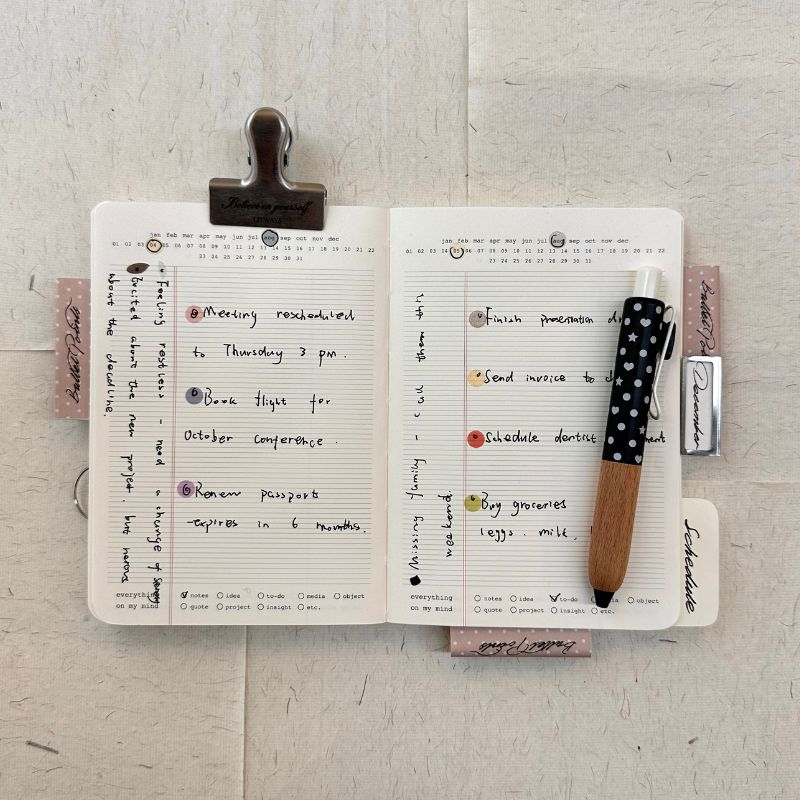 Believe in yourself
jan feb mar apr may jun jul aug sep oct nov dec
01 02 03 04 05 06 07 08 09 10 11 12 13 14 15 16 17 18 19 20 21 22
23 24 25 26 27 28 29 30 31
Excited about the new project, but nervous
about the deadline.
Feeling restless - need a change of scenery
Meeting rescheduled
to Thursday 3 pm.
Book flight for
October conference.
Renew passports
-expires in 6 months.
everything
on my mind
notes idea to-do media object
quote project insight etc.
jan feb mar apr may jun jul aug sep oct nov dec
01 02 03 04 05 06 07 08 09 10 11 12 13 14 15 16 17 18 19 20 21 22
23 24 25 26 27 28 29 30 31
Missing family - call them this
weekend.
Finish presentation
Send invoice to
Schedule dentist
Buy groceries
eggs, milk,
everything
on my mind
notes idea to-do media object
quote project insight etc.
December
Schedule